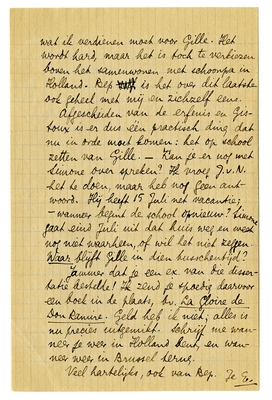 wat ik verdienen moet voor Gille. Het
wordt hard, maar het is toch te verkiezen
boven het samenwonen met schoonpa in
Holland. Bep is het over dit laatste
ook geheel met mij en zichzelf eens.
Afgescheiden van de erfenis en Gis-
toux is er dus één practisch ding dat
nu in orde moet komen: het op school
zetten van Gille. — Kan je er nog met
Simone over spreken? Ik vroeg J. v. N.
het te doen, maar heb nog geen ant-
woord. Hij heeft 15 Juli net vacantie;
— wanneer begint de school opnieuw? Simone
gaat eind Juli uit dat huis weg en weet
nog niet waarheen, of wil het niet zeggen.
Waar blijft Gille in dien tusschentijd?
Jammer dat je een ex van die disser-
tatie bestelde! Ik zend je spoedig daarvoor
een boek in de plaats, bv. La Gloire de
Don Ramire. Geld heb ik niet; alles is
nu precies uitgemikt. Schrijf me wan-
neer je weer in Holland bent, en wan-
neer weer in Brussel terug.
Veel hartelijks, ook van Bep. Je E.